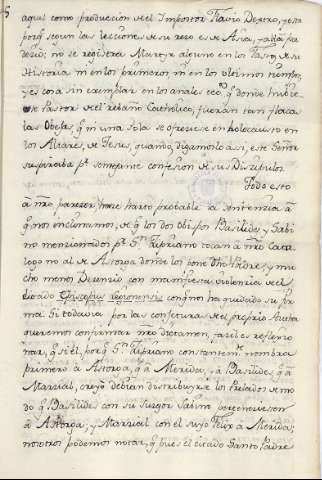 aqui como produccion de el Impostor Flavio Dextro, y esto
porq. segun las lecciones de su rezo es de Asia, y alli pa-
decio; no se registra Martyr alguno en los Fastos de su
Historia ni en los primeros, ni en los ultimos tiempos,
y es cosa sin exemplar en los anales q. donde hubie-
se Pastor de el rebaño Catholico, fueran tan flacas
las Obejas, q. ni una sola se ofreciese en holocausto en
los Altares de Jesus, quando, digamoslo asi, este Señor
suspiraba pr. semejante confesion de sus Discipulos.
Todo esto
a mro parecer, hace harto probable la sentencia à
q. nos inclinamos, de q. los dos obispos Basilides, y Sabi-
no mencionados pr. Sn. Cipriano tocan a mro Cata-
logo no al de Astorga donde los pone dho Padre; y mu-
cho menos Decencio con manifiesta violencia de el
citado Episcopus legionensis con q. nos ha quidado su fir-
ma. Si todavia por las conjeturas de el proprio Autor
queremos confirmar mro dictamen, facil es reflexio-
nar, q. si el, porq. Sn. Cipriano constantemte. nombra
primero à Astorga, q. à Merida, y à Basilides, q. à
Marcial, creyò debian distribuyrse los Prelados de mo-
do q. Basilides con su succesor Sabino perteneciesen
à Astorga; y Marcial con el suyo Felix à Merida;
nosotros podemos notar, q. pues el citado Santo Padre